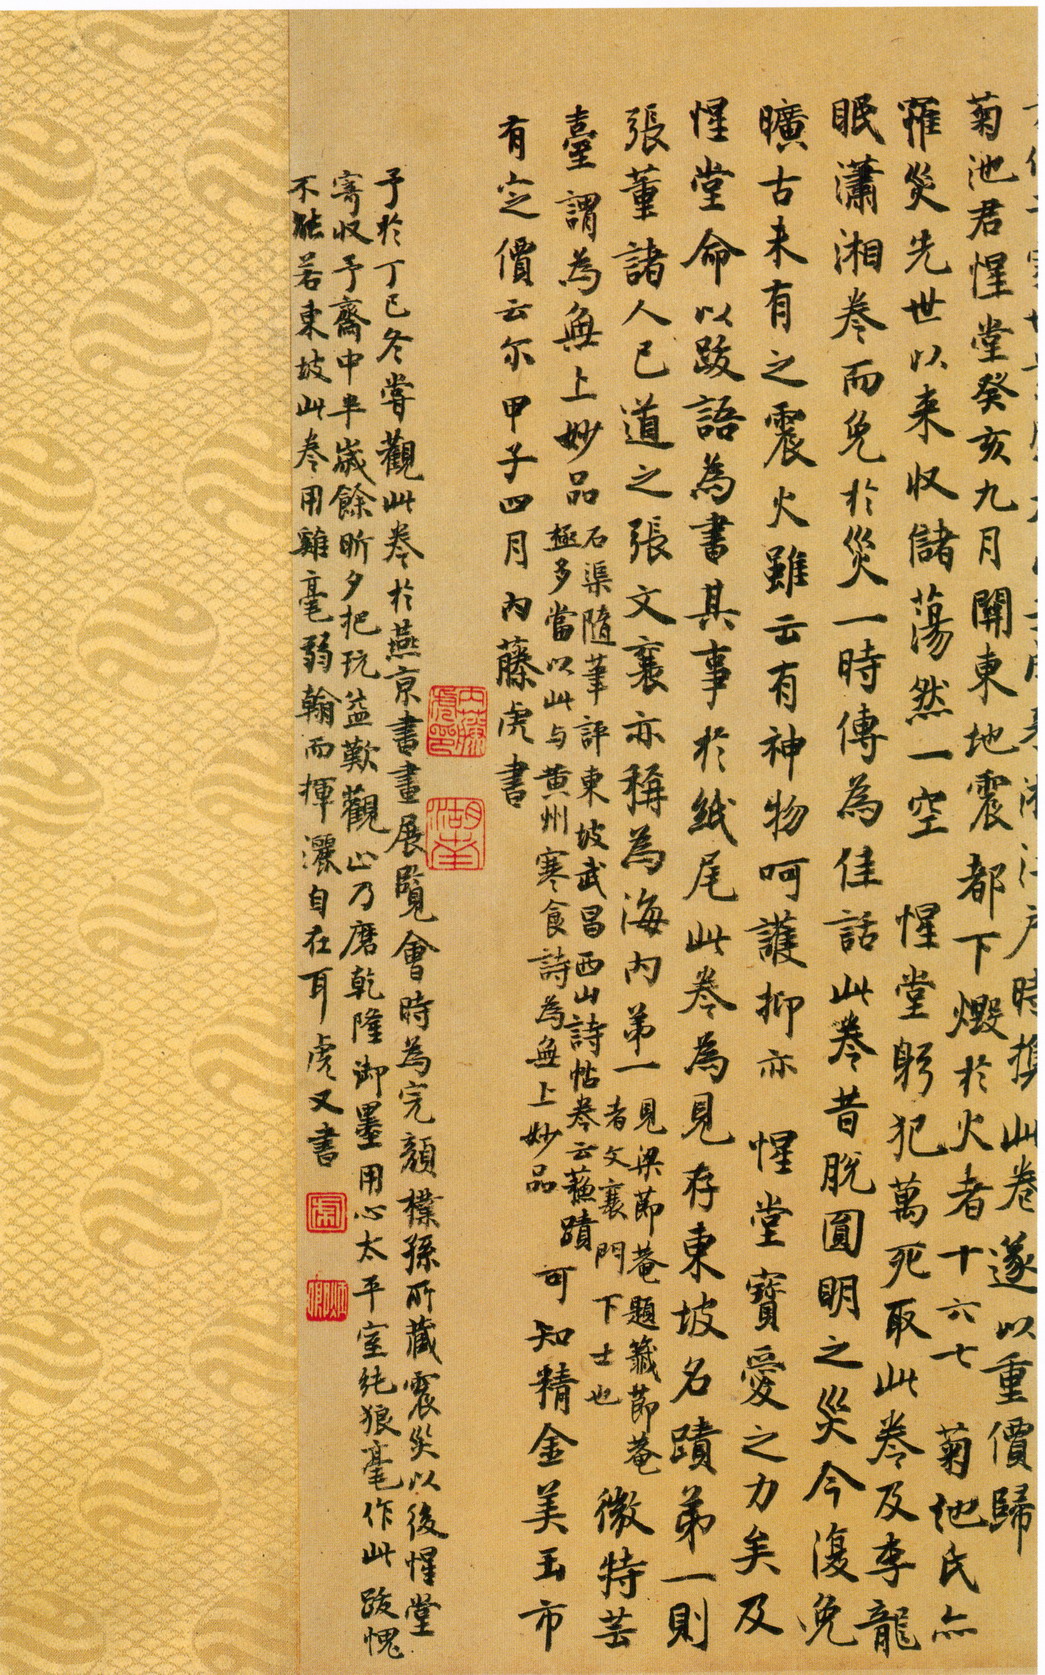 時攜此卷遂以重價歸
菊池君惺堂癸亥九月關東地震都下燬於火者十六七菊池氏亦
罹災先世以来収儲蕩然一空惺堂躬犯萬死取此卷及李龍
眠瀟湘卷而免於災一時傳為佳話此卷昔脫圓明之災今復免
曠古未有之震火雖云有神物呵護抑亦惺堂寶愛之力矣及
惺堂命以跋語為書其事於紙尾此卷為見存東坡名蹟第一則
張董諸人已道之張文襄亦稱為海內第一見梁節菴題籤節菴者文襄門下士也微特芸
臺謂為無上妙品石渠隨筆評東坡武昌西山詩帖卷云蘇蹟極多當以此与黃州寒食詩為無上妙品可知精金美玉市
有定價云尓甲子四月內藤虎書
內藤虎印
湖南
予於丁巳冬嘗觀此卷於燕京書畫展覽會時為完顏樸孫所藏震災以後惺堂
寄収予齋中半歲餘昕夕把玩益歎觀止乃磨乾隆御墨用心太平室純狼毫作此跋愧
不能若東坡此卷用雞毫弱翰而揮灑自在耳虎又書